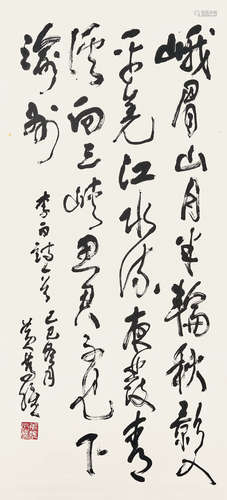 峨眉山月半轮秋影入
平羌江水流夜发清
溪向三峡思君不见下
渝州
李白诗一首
己巳冬月